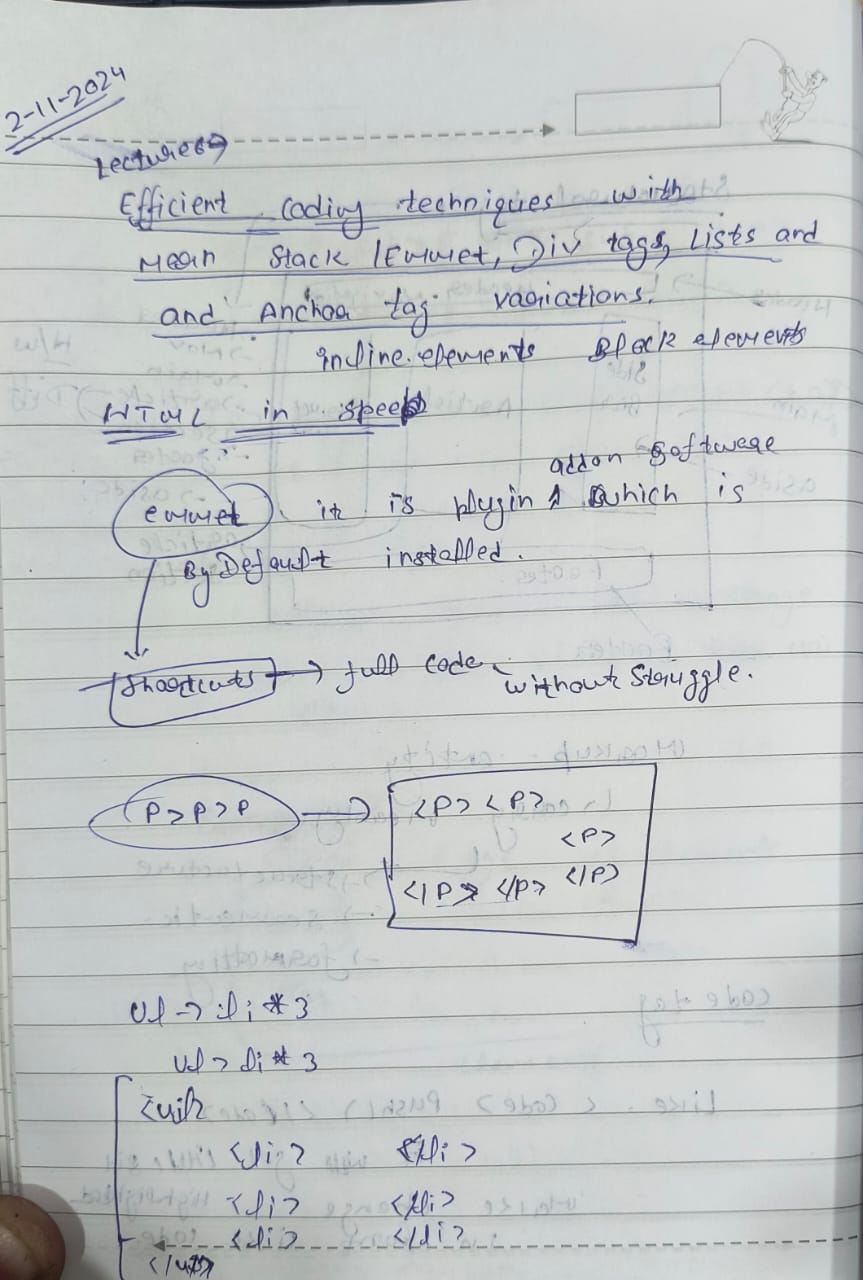 2-11-2024
Lectures
Efficient Coding techniques with
Mean Stack / Emmet, Div tags, Lists and
and Anchor tag variations.
inline elements Block elements
HTML in speed
addon software
emmet it is plugin which is
By Default installed.
Shortcuts → full code without Struggle.
P>P>P → <P> <P>
<P>
</P> </P> </P>
Ul → li * 3
Ul > li * 3
<ul>
<li> </li>
<li> </li>
<li> </li>
</ul>